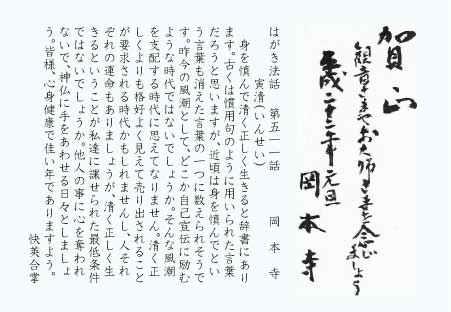 賀正
観音さまやお大師さまを念じ
ましょう
平成二十二年元旦
岡本寺
はがき法話　第五一一話　　岡本寺
寅清(いんせい)
身を慎んで清く正しく生きると辞書にあり
ます。古くは慣用句のように用いられた言葉
だろうと思いますが、近頃は身を慎んでとい
う言葉も消えた言葉の一つに数えられそうで
す。昨今の風潮として、どこか自己宣伝に励む
ような時代ではないでしょうか。そんな風潮
を支配する時代に思えてなりません。清く正
しくよりも格好よく見えて売り出されること
が要求される時代かもしれませんし、人それ
ぞれの運命もありましょうが、清く正しく生
きるということが私達に課せられた最低条件
ではないでしょうか。他人の事に心を奪われ
ないで、神仏に手をあわせる日々としましょ
う。皆様、心身健康で佳い年でありますよう。
快英合掌